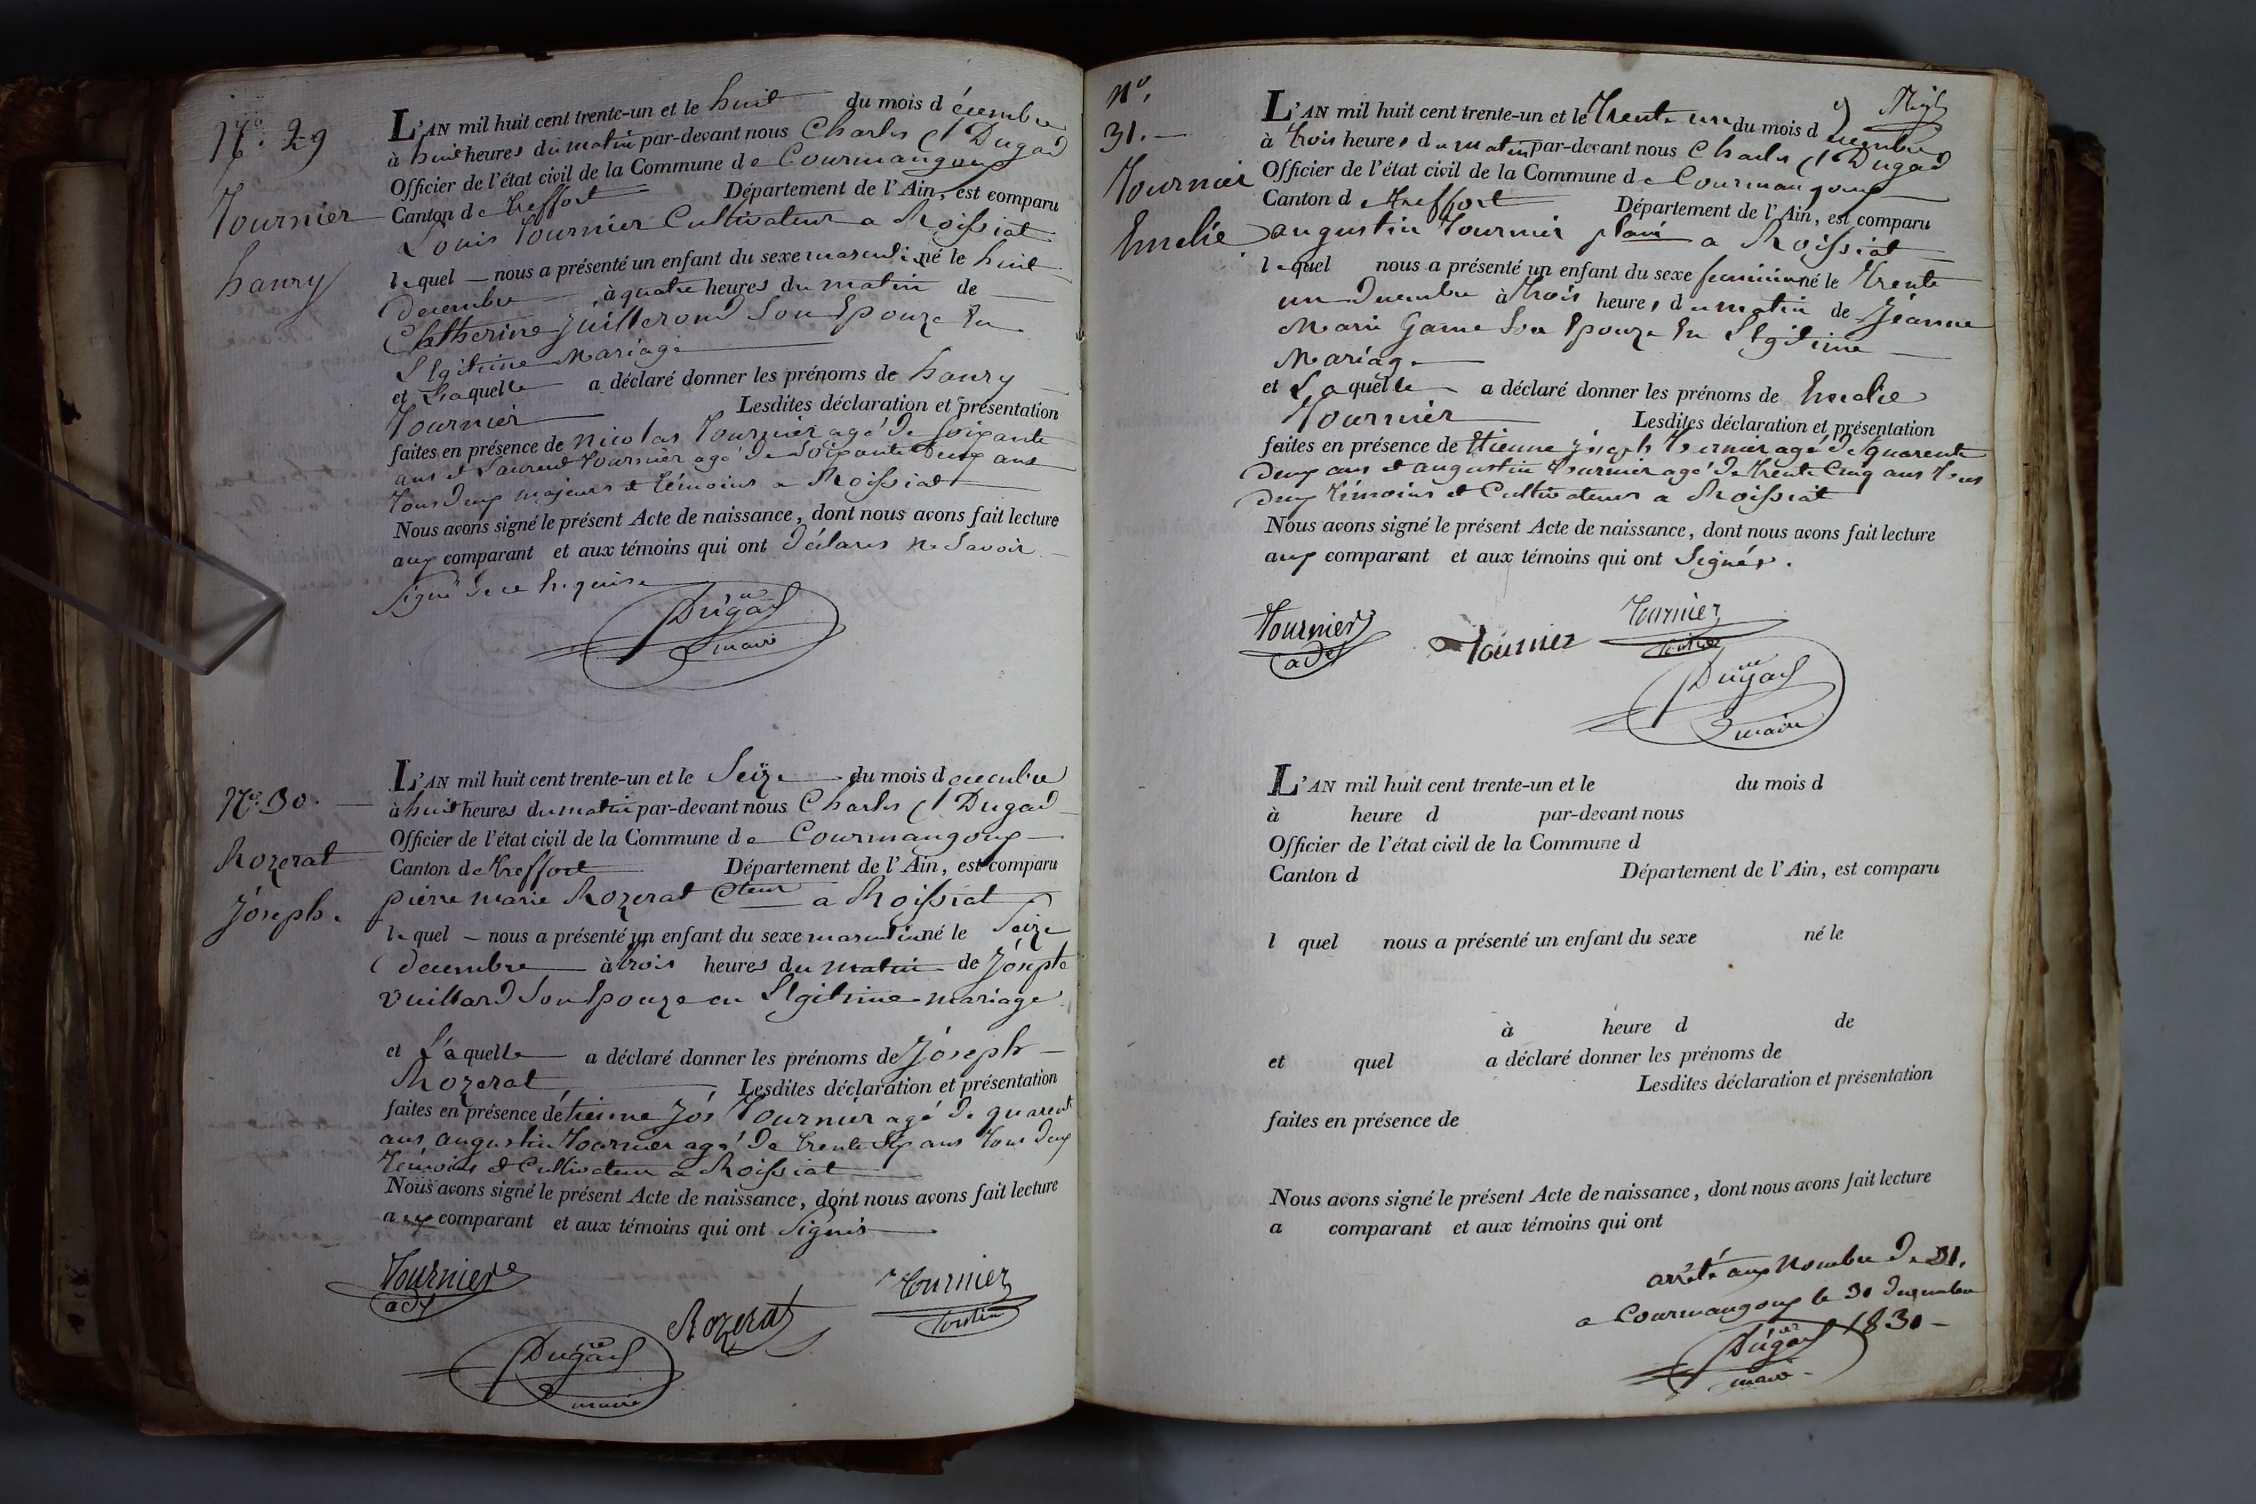 N.º 29
Tournier
hanry
L'AN mil huit cent trente-un et le huit du mois d écembre
à huit heures du matin par-devant nous Charles Dugad
Officier de l'état civil de la Commune de Courmangoux
Canton de treffort Département de l'Ain, est comparu
Louis Tournier Cultivateur a Roissiat
lequel nous a présenté un enfant du sexe masculin né le huit
Decembre à quatre heures du matin de
Catherine Juillerond Son Epouze En
Legitime Mariage
et Laquelle a déclaré donner les prénoms de hanry
Tournier Lesdites déclaration et présentation
faites en présence de nicolas Tournier agé De Soixante
ans et Laurend Tournier agé De Soixante Deux ans
tous Deux majeurs et témoins a Roissiat
Nous avons signé le présent Acte de naissance, dont nous avons fait lecture
aux comparant et aux témoins qui ont Déclarés Ne Savoir
Signé De ce Requise
Dugad
maire
Nº. 30.
Rozerat
Jóseph.
L'AN mil huit cent trente-un et le Seize du mois d ecembre
à huit heures du matin par-devant nous Charles Dugad
Officier de l'état civil de la Commune de Courmangoux
Canton de treffort Département de l'Ain, est comparu
pierre marie Rozerat Cteur a Roissiat
lequel nous a présenté un enfant du sexe masculin né le Seize
Decembre à trois heures du matin de Jósepte
vuillard Son Epouze en Legitime mariage
et Laquelle a déclaré donner les prénoms de Jóseph
Rozerat Lesdites déclaration et présentation
faites en présence d étienne Jós Tournier agé De quarente
ans augustin Tournier agé De trente Six ans tous Deux
témoins et Cultivateur a Roissiat
Nous avons signé le présent Acte de naissance, dont nous avons fait lecture
aux comparant et aux témoins qui ont Signés
Tournier
adj
Rozerat
Tournier
Dugad
maire
Nº.
31.
Tournier
Emelie
L'AN mil huit cent trente-un et le Trente un du mois d ecembre
à trois heures du matin par-devant nous Charles Dugad
Officier de l'état civil de la Commune de Courmangoux
Canton d treffort Département de l'Ain, est comparu
augustin Tournier a Roissiat
lequel nous a présenté un enfant du sexe feminin né le Trente
un Decembre à trois heures du matin de Jéanne
Marie Game Son Epouze En Legitime
Mariage
et Laquelle a déclaré donner les prénoms de Emelie
Tournier Lesdites déclaration et présentation
faites en présence de Etienne Jóseph Tournier agé De quarente
Deux ans et augustin Tournier agé De trente Cinq ans tous
Deux témoins et Cultivateurs a Roissiat
Nous avons signé le présent Acte de naissance, dont nous avons fait lecture
aux comparant et aux témoins qui ont Signés.
Tournier
adj
Tournier
Tournier
Dugad
maire
L'AN mil huit cent trente-un et le du mois d
à heure d par-devant nous
Officier de l'état civil de la Commune d
Canton d Département de l'Ain, est comparu
l quel nous a présenté un enfant du sexe né le
à heure d de
et quel a déclaré donner les prénoms de
Lesdites déclaration et présentation
faites en présence de
Nous avons signé le présent Acte de naissance, dont nous avons fait lecture
a comparant et aux témoins qui ont
arrêté aux Nombre De 31,
a Courmangoux le 31 Decembre
1831
Dugad
maire